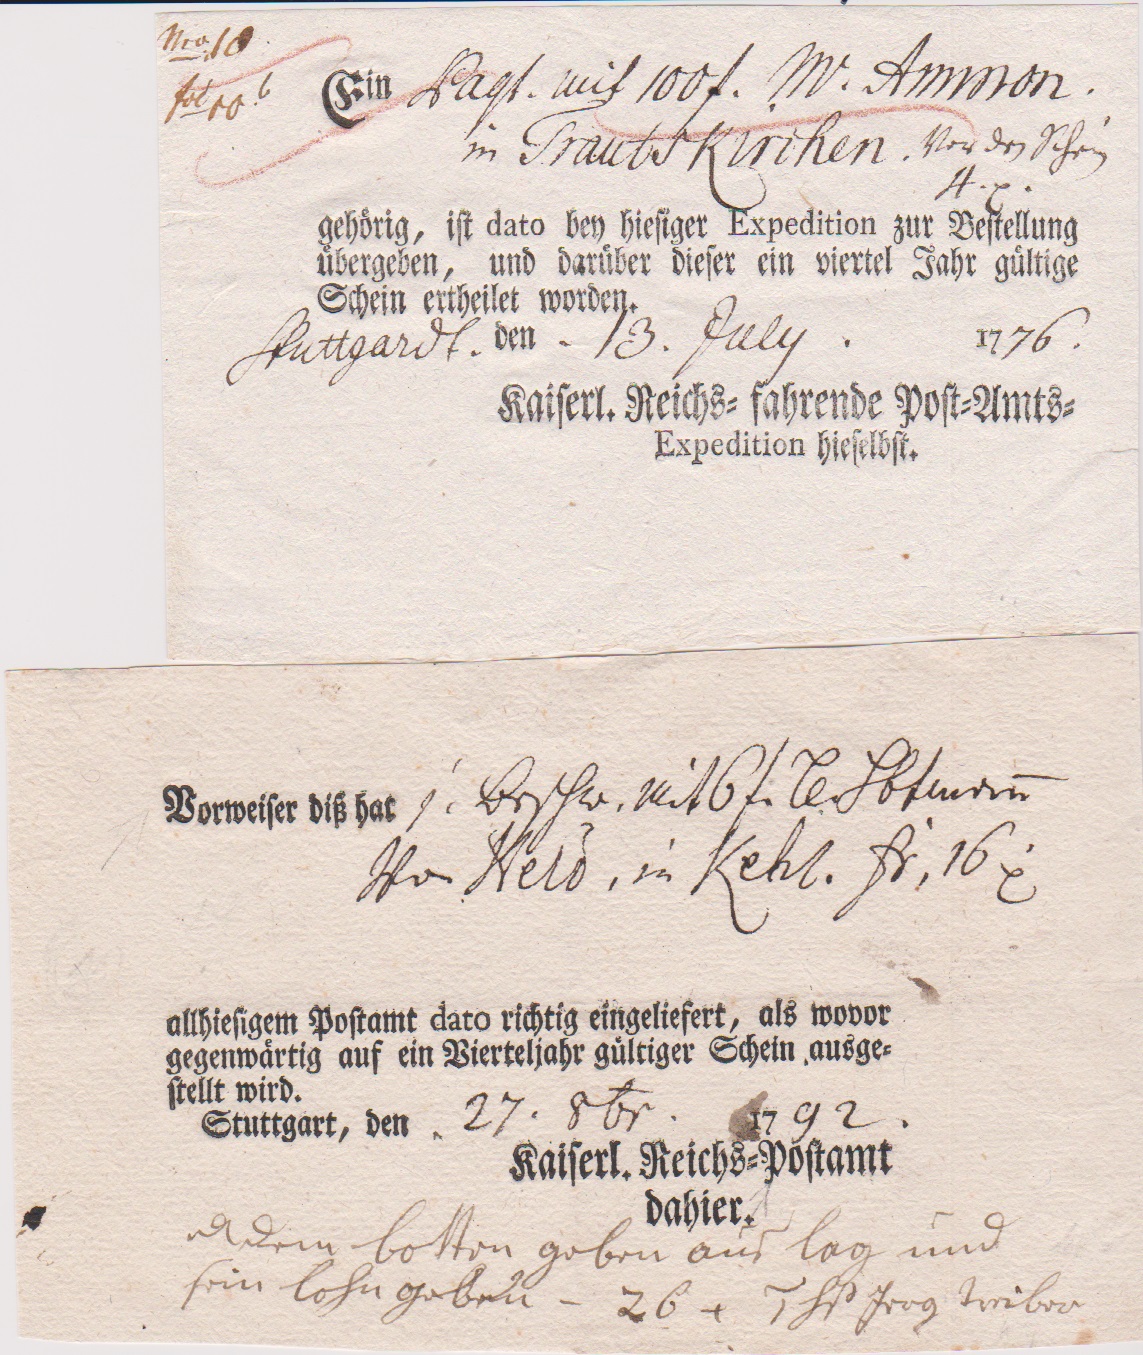 Nro. 18
fol 10
Ein Paqt. mit 100 f. W. Ammon.
in Trautskirchen. Vor den Schein
4 x.
gehörig, ist dato bey hiesiger Expedition zur Bestellung
übergeben, und darüber dieser ein viertel Jahr gültige
Schein ertheilet worden.
Stuttgardt. den 13. July. 1776.
Kaiserl. Reichs- fahrende Post-Amts-
Expedition hieselbst.
Vorweiser diß hat 1. mit 6 f.
in Kehl. fr. 16 x
allhiesigem Postamt dato richtig eingeliefert, als wovor
gegenwärtig auf ein Vierteljahr gültiger Schein ausge-
stellt wird.
Stuttgart, den 27. 8br. 1792.
Kaiserl. Reichs-Postamt
dahier.
dem botten geben aus lag und
sein lohn geben - 26